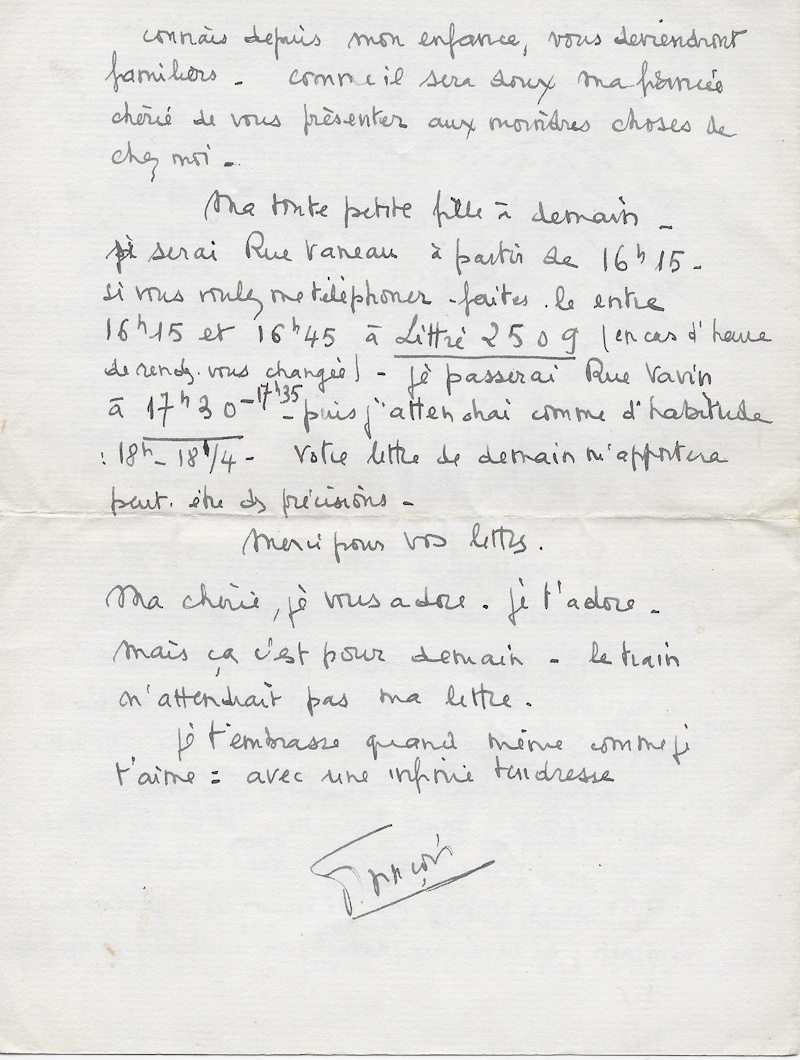 connais depuis mon enfance, vous deviendront
familiers - comme il sera doux ma fiancée
chérie de vous présenter aux moindres choses de
chez moi -
Ma toute petite fille à demain -
je serai Rue Vaneau à partir de 16h15 -
si vous voulez me téléphoner - faites-le entre
16h15 et 16h45 à Littré 2509 (en cas d'heure
de rendez-vous changée) - je passerai Rue Vavin
à 17h30 - 17h35 - puis j'attendrai comme d'habitude
: 18h - 18h1/4 - Votre lettre de demain m'apportera
peut-être des précisions -
Merci pour vos lettres.
Ma chérie, je vous adore. je t'adore -
mais ça c'est pour demain - le train
n'attendrait pas ma lettre.
je t'embrasse quand même comme je
t'aime : avec une infinie tendresse
François